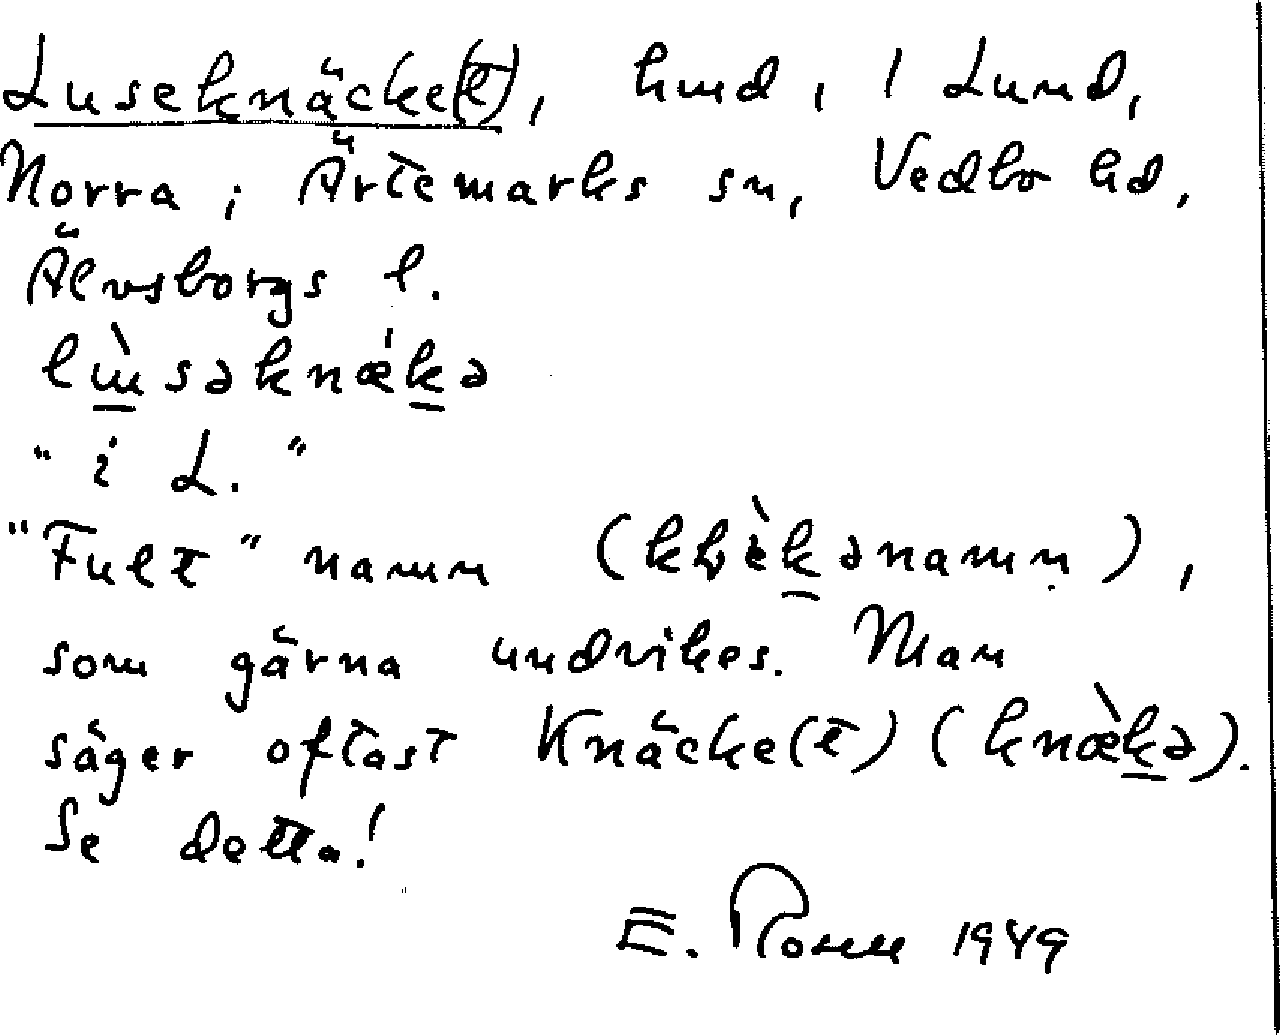 Luseknäcke(t), hmd, 1 Lund,
Norra; Ärtemarks sn, Vedbo hd,
Älvsborgs l.
lùsəknǽkə
"i L."
"Fult" namn
som gärna undvikes. Man
säger oftast Knäcke(t) (knæ̀kə).
Se detta!
E. Rosell 1949